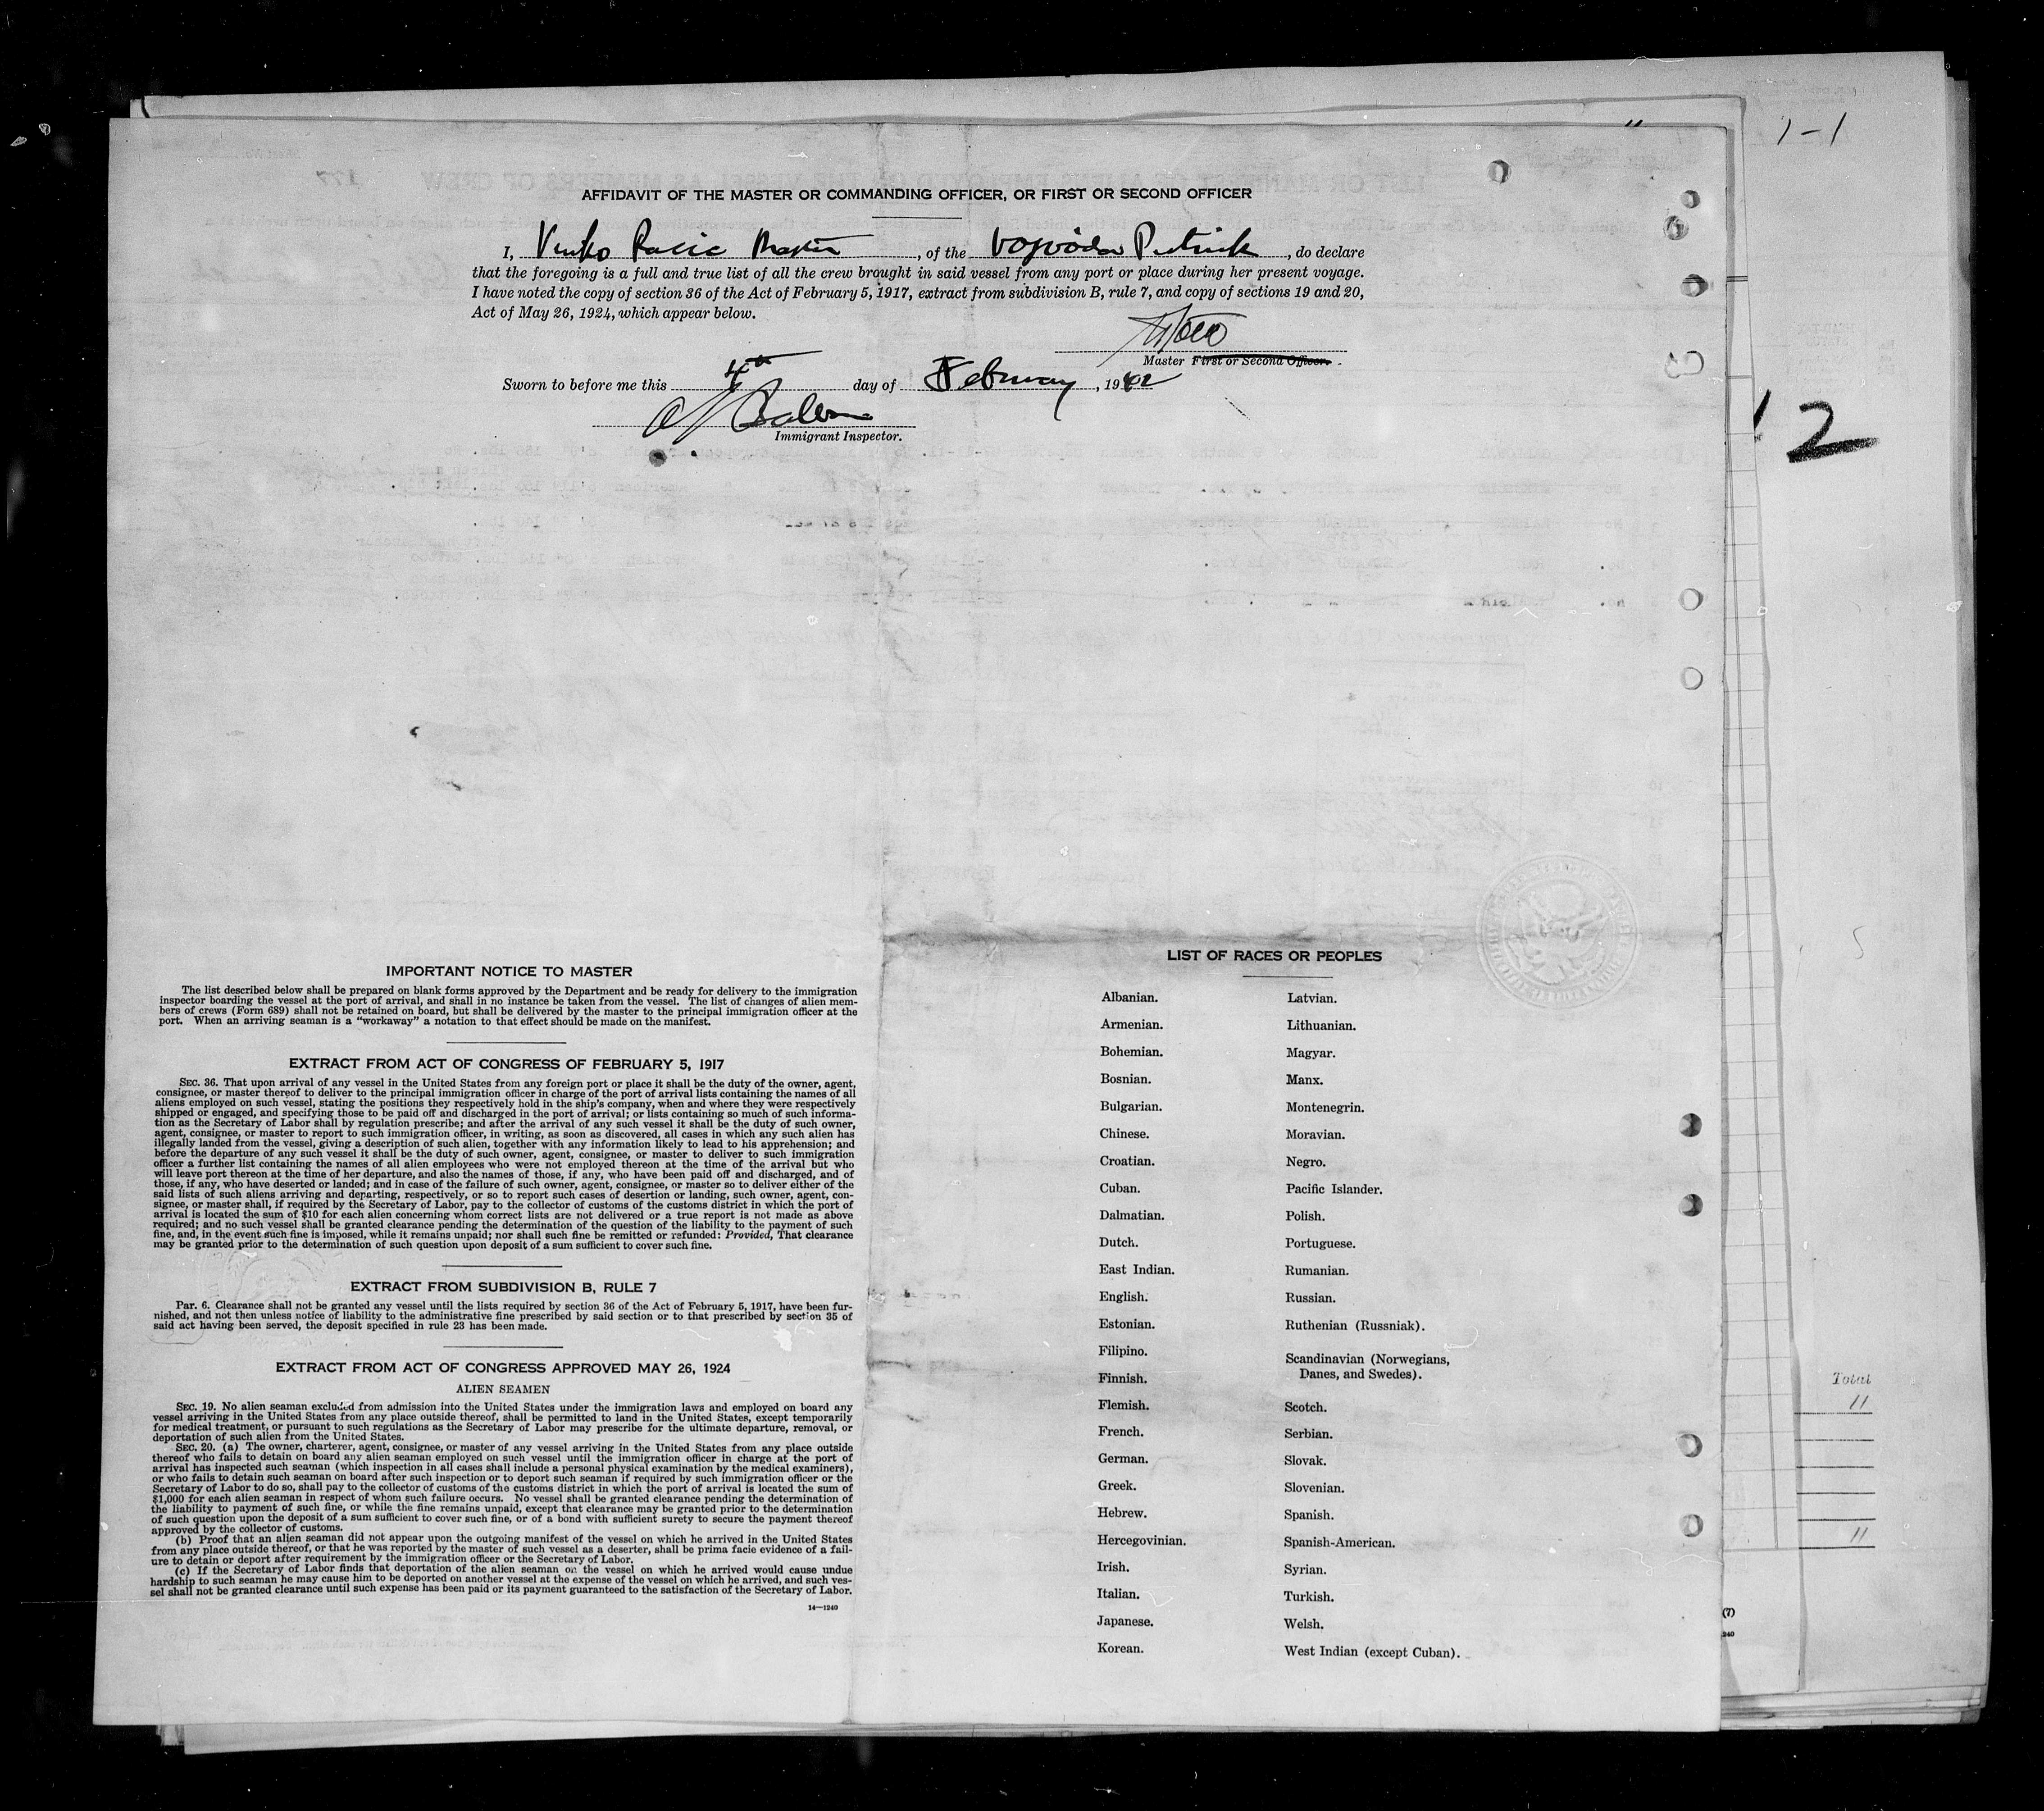 1-1
AFFIDAVIT OF THE MASTER OR COMMANDING OFFICER, OR FIRST OR SECOND OFFICER
I, Vinko Racic Master, of the Vojvoda Putnik, do declare
that the foregoing is a full and true list of all the crew brought in said vessel from any port or place during her present voyage.
I have noted the copy of section 36 of the Act of February 5, 1917, extract from subdivision B, rule 7, and copy of sections 19 and 20,
Act of May 26, 1924, which appear below.
Master First or Second Officer.
Sworn to before me this 4th day of February, 1942
Immigrant Inspector.
2
IMPORTANT NOTICE TO MASTER
The list described below shall be prepared on blank forms approved by the Department and be ready for delivery to the immigration
inspector boarding the vessel at the port of arrival, and shall in no instance be taken from the vessel. The list of changes of alien mem-
bers of crews (Form 689) shall not be retained on board, but shall be delivered by the master to the principal immigration officer at the
port. When an arriving seaman is a "workaway" a notation to that effect should be made on the manifest.
EXTRACT FROM ACT OF CONGRESS OF FEBRUARY 5, 1917
SEC. 36. That upon arrival of any vessel in the United States from any foreign port or place it shall be the duty of the owner, agent,
consignee, or master thereof to deliver to the principal immigration officer in charge of the port of arrival lists containing the names of all
aliens employed on such vessel, stating the positions they respectively hold in the ship's company, when and where they were respectively
shipped or engaged, and specifying those to be paid off and discharged in the port of arrival; or lists containing so much of such informa-
tion as the Secretary of Labor shall by regulation prescribe; and after the arrival of any such vessel it shall be the duty of such owner,
agent, consignee, or master to report to such immigration officer, in writing, as soon as discovered, all cases in which any such alien has
illegally landed from the vessel, giving a description of such alien, together with any information likely to lead to his apprehension; and
before the departure of any such vessel it shall be the duty of such owner, agent, consignee, or master to deliver to such immigration
officer a further list containing the names of all alien employees who were not employed thereon at the time of the arrival but who
will leave port thereon at the time of her departure, and also the names of those, if any, who have been paid off and discharged, and of
those, if any, who have deserted or landed; and in case of the failure of such owner, agent, consignee, or master so to deliver either of the
said lists of such aliens arriving and departing, respectively, or so to report such cases of desertion or landing, such owner, agent, con-
signee, or master shall, if required by the Secretary of Labor, pay to the collector of customs of the customs district in which the port of
arrival is located the sum of $10 for each alien concerning whom correct lists are not delivered or a true report is not made as above
required; and no such vessel shall be granted clearance pending the determination of the question of the liability to the payment of such
fine, and, in the event such fine is imposed, while it remains unpaid; nor shall such fine be remitted or refunded: Provided, That clearance
may be granted prior to the determination of such question upon deposit of a sum sufficient to cover such fine.
EXTRACT FROM SUBDIVISION B, RULE 7
Par. 6. Clearance shall not be granted any vessel until the lists required by section 36 of the Act of February 5, 1917, have been fur-
nished, and not then unless notice of liability to the administrative fine prescribed by said section or to that prescribed by section 35 of
said act having been served, the deposit specified in rule 23 has been made.
EXTRACT FROM ACT OF CONGRESS APPROVED MAY 26, 1924
ALIEN SEAMEN
SEC. 19. No alien seaman excluded from admission into the United States under the immigration laws and employed on board any
vessel arriving in the United States from any place outside thereof, shall be permitted to land in the United States, except temporarily
for medical treatment, or pursuant to such regulations as the Secretary of Labor may prescribe for the ultimate departure, removal, or
deportation of such alien from the United States.
SEC. 20. (a) The owner, charterer, agent, consignee, or master of any vessel arriving in the United States from any place outside
thereof who fails to detain on board any alien seaman employed on such vessel until the immigration officer in charge at the port of
arrival has inspected such seaman (which inspection in all cases shall include a personal physical examination by the medical examiners),
or who fails to detain such seaman on board after such inspection or to deport such seaman if required by such immigration officer or the
Secretary of Labor to do so, shall pay to the collector of customs of the customs district in which the port of arrival is located the sum of
$1,000 for each alien seaman in respect of whom such failure occurs. No vessel shall be granted clearance pending the determination of
the liability to payment of such fine, or while the fine remains unpaid, except that clearance may be granted prior to the determination
of such question upon the deposit of a sum sufficient to cover such fine, or of a bond with sufficient surety to secure the payment thereof
approved by the collector of customs.
(b) Proof that an alien seaman did not appear upon the outgoing manifest of the vessel on which he arrived in the United States
from any place outside thereof, or that he was reported by the master of such vessel as a deserter, shall be prima facie evidence of a fail-
ure to detain or deport after requirement by the immigration officer or the Secretary of Labor.
(c) If the Secretary of Labor finds that deportation of the alien seaman on the vessel on which he arrived would cause undue
hardship to such seaman he may cause him to be deported on another vessel at the expense of the vessel on which he arrived, and such ves-
sel shall not be granted clearance until such expense has been paid or its payment guaranteed to the satisfaction of the Secretary of Labor.
14—1240
LIST OF RACES OR PEOPLES
Albanian.
Armenian.
Bohemian.
Bosnian.
Bulgarian.
Chinese.
Croatian.
Cuban.
Dalmatian.
Dutch.
East Indian.
English.
Estonian.
Filipino.
Finnish.
Flemish.
French.
German.
Greek.
Hebrew.
Hercegovinian.
Irish.
Italian.
Japanese.
Korean.
Latvian.
Lithuanian.
Magyar.
Manx.
Montenegrin.
Moravian.
Negro.
Pacific Islander.
Polish.
Portuguese.
Rumanian.
Russian.
Ruthenian (Russniak).
Scandinavian (Norwegians,
Danes, and Swedes).
Scotch.
Serbian.
Slovak.
Slovenian.
Spanish.
Spanish-American.
Syrian.
Turkish.
Welsh.
West Indian (except Cuban).
5
Total
11
11
(7)
240